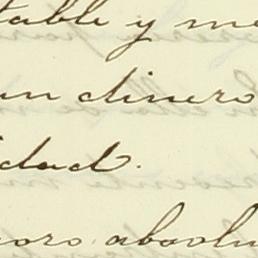 table y me
un dinero
idad.
coro absolu